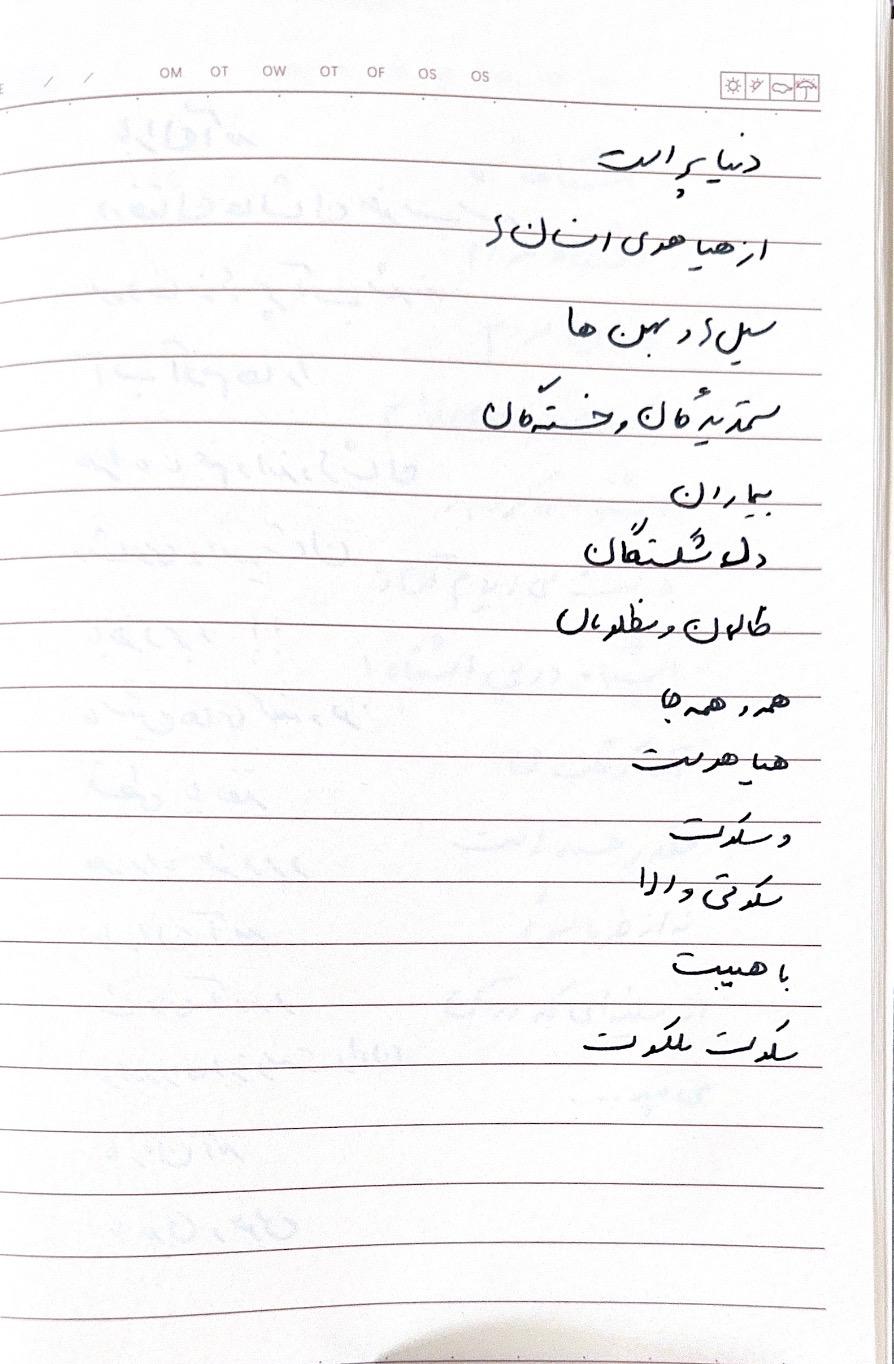 OM OT OW OT OF OS OS
دنیا پر است
از هیاهوی انسان‌ها
سیل‌ها و بهمن ها
ستمدیدگان و خستگان
بیماران
دل شکستگان
ظالمان و مظلومان
همه و همه جا
هیاهوست
و سکوت
سکوتی والا
با هیبت
سکوت ملکوت